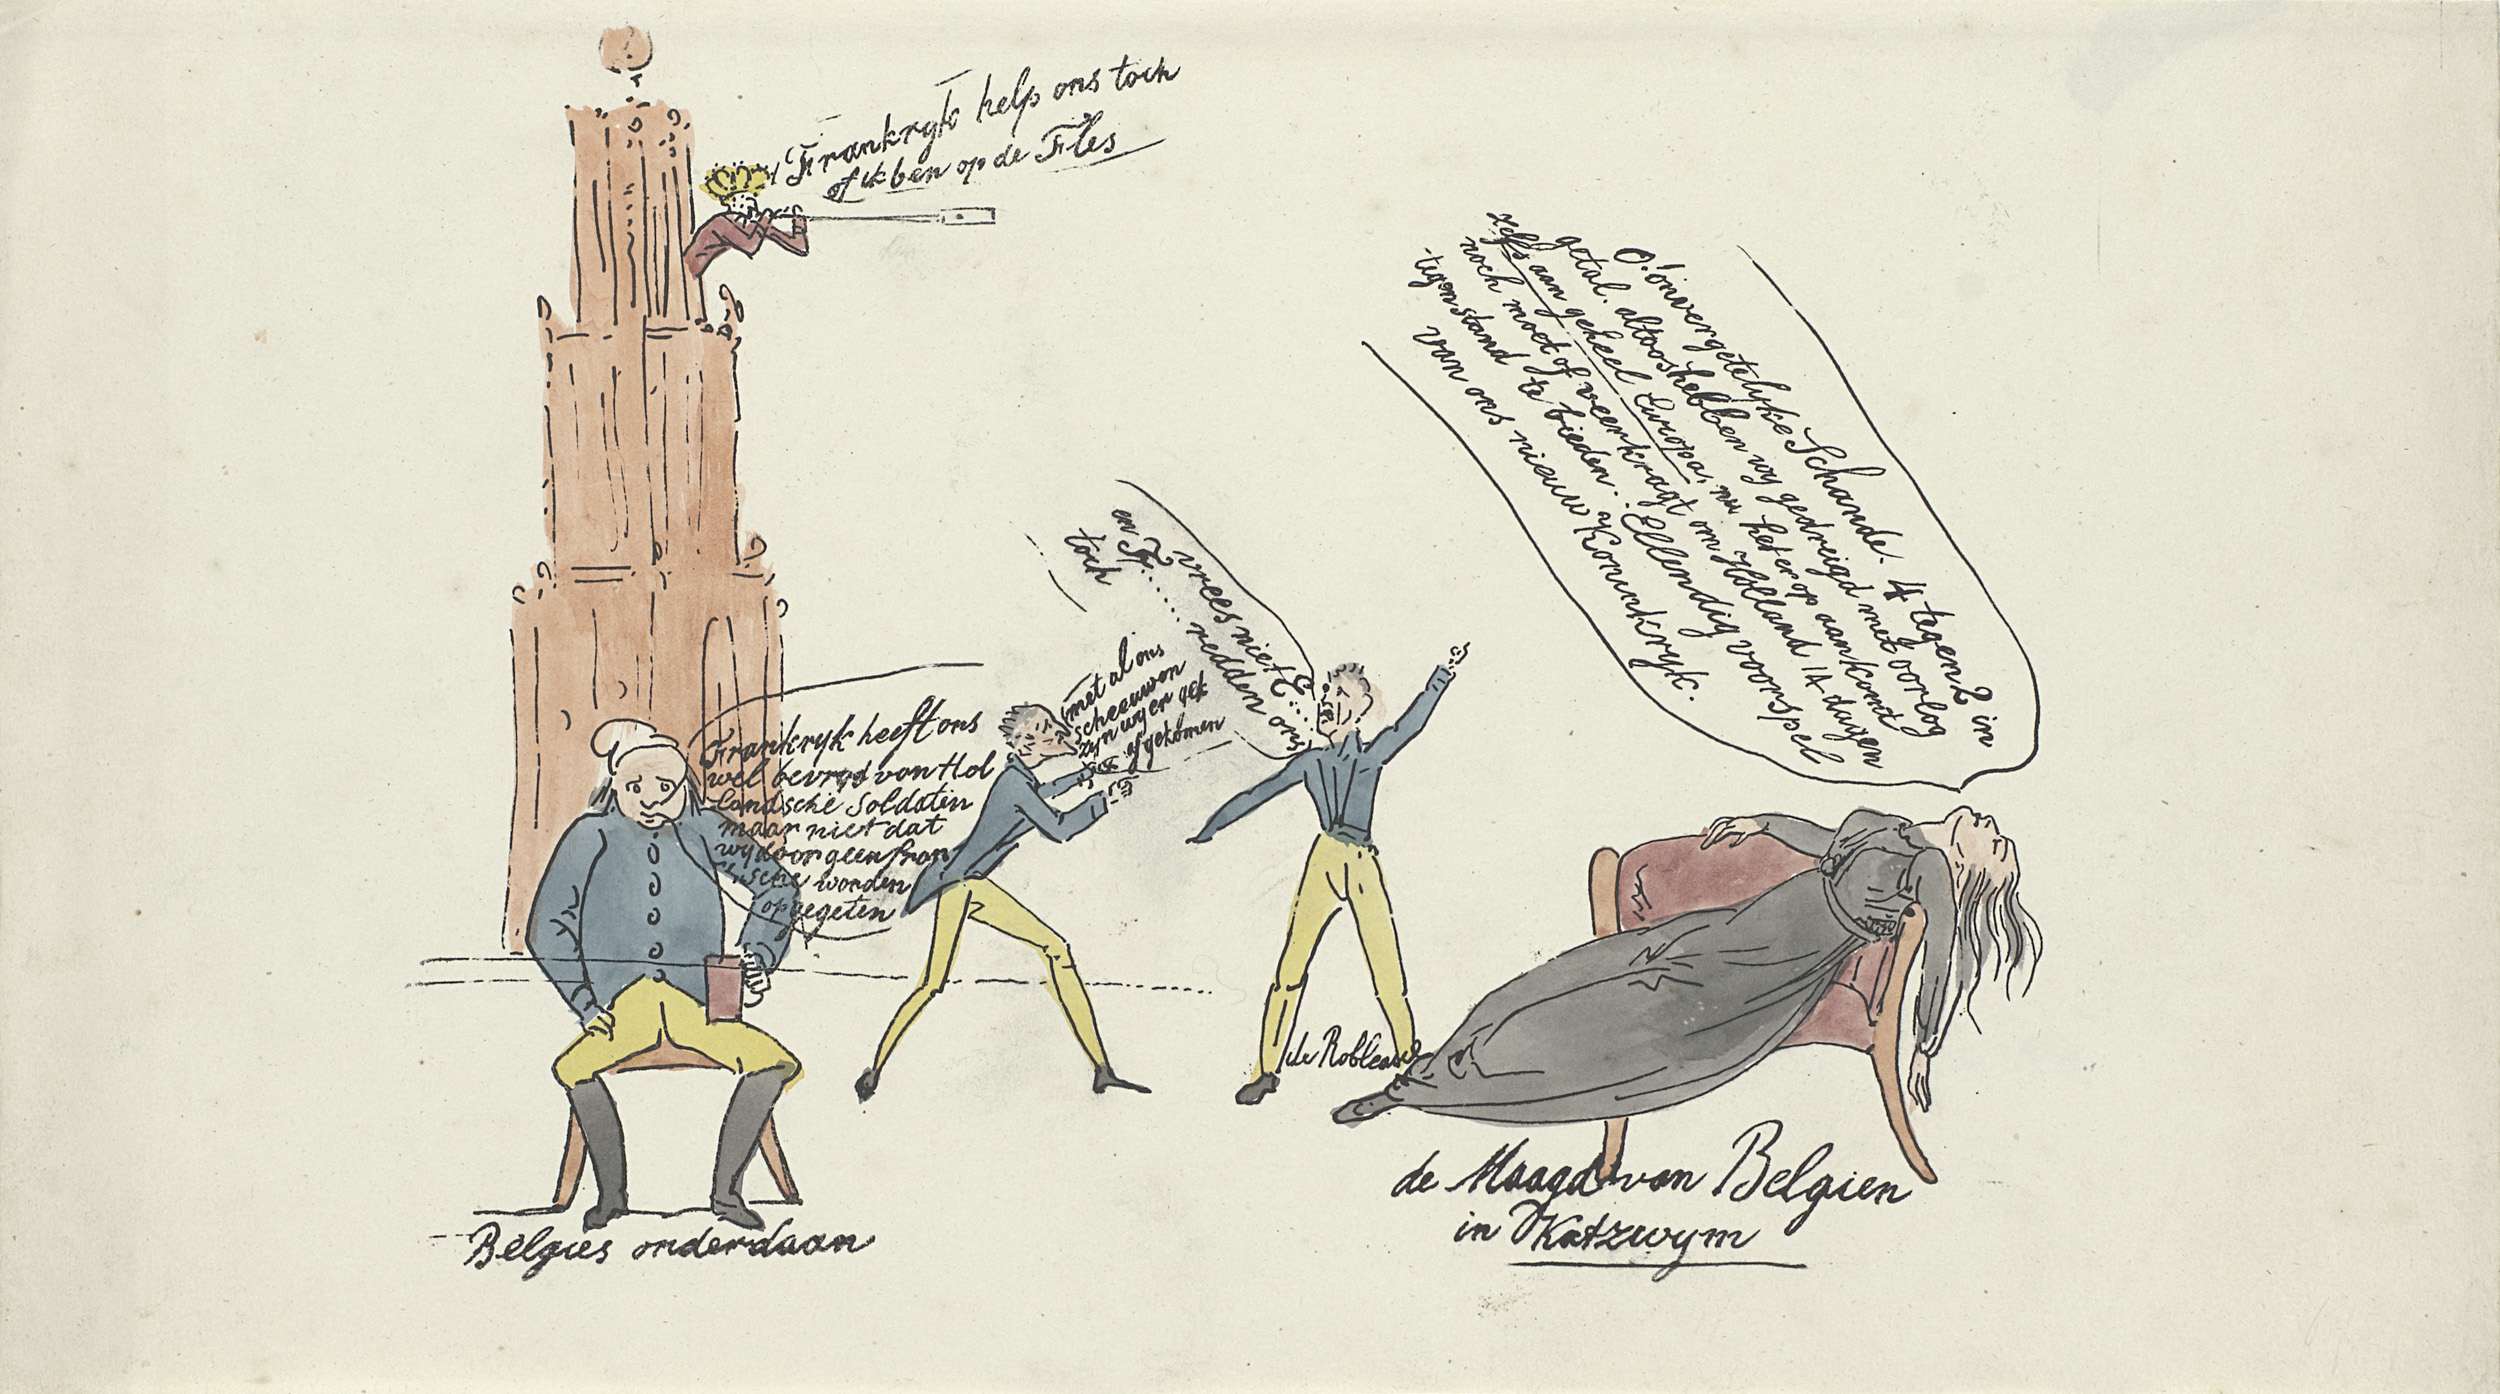 Frankryk help ons toch
of ik ben op de Fles
O! onvergetelyke Schande. 4 tegen 2 in
getal. altoos hebben wy gedreigd met oorlog
zelfs aan geheel Europa, nu het er op aan komt
noch moet of veerkragt om Holland 14 dagen
tegenstand te bieden.. Ellendig voorspel
van ons nieuw Koninkryk.
vrees niet E.... 
en F...... redden ons
toch
met al ons
schreeuwen
zyn wy er gek
afgekomen
Frankryk heeft ons
wel bevryd van Hol
landsche Soldaten
maar niet dat
wy door geen fran
sche worden
opgegeten
de
de Maagd van Belgien
in Katzwym
Belgies onderdaan